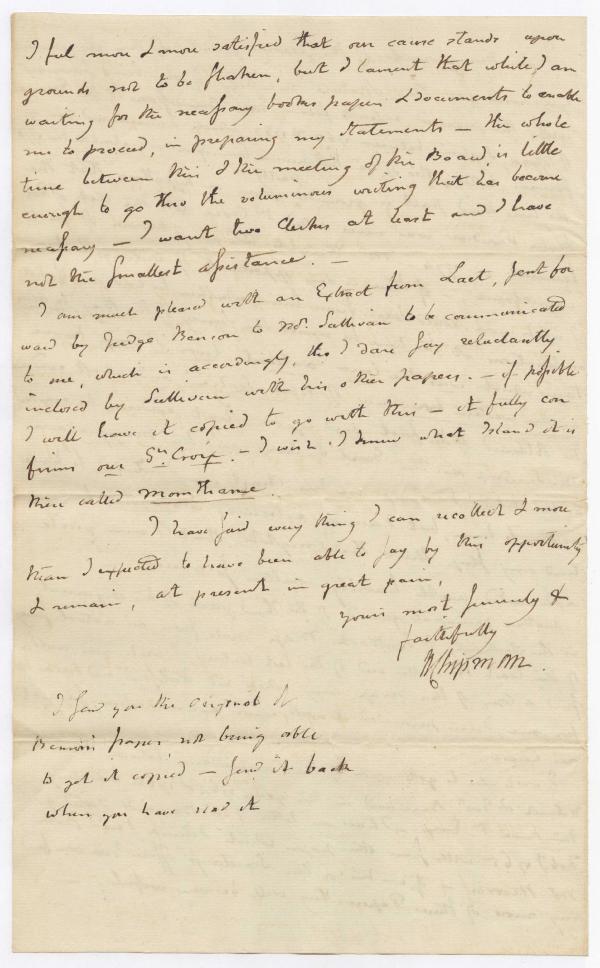 I feel more & more satisfied that our cause stands upon
grounds not to be shaken, but I lament that while I am
waiting for the necessary books papers & documents to enable
me to proceed, in preparing my Statements — the whole
time between this & the meeting of the Board, is little
enough to go thro the voluminous writing that has become
necessary — I want two Clerks at least and I have
not the smallest assistance. —
I am much pleased with an Extract from Laet, sent for
ward by Judge Benson to Mr. Sullivan to be communicated
to me, which is accordingly, tho I dare say reluctantly
inclosed by Sullivan with his other papers. — if possible
I will have it copied to go with this — it fully con
firms our St. Croix. — I wish I knew what Island it is
there called Monthane.
I have said every thing I can recollect & more
than I expected to have been able to say by this opportunity
& remain, at present in great pain,
yours most sincerely &
faithfully
W Chipman.
I send you the original of
Benson's paper not being able
to get it copied — send it back
when you have read it